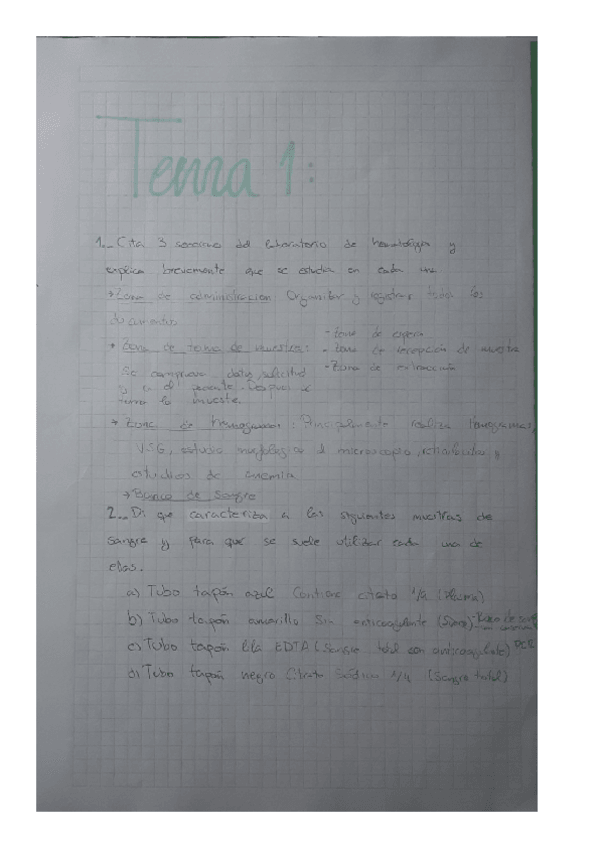 Tema 1:
1._ Cita 3 secciones del laboratorio de hematología y
explica brevemente que se estudia en cada una
→ Zona de administracion Organizar y registrar todos los
documentos
→ Zona de toma de muestras:
Se comprueva datos, solicitud
y si el paciente. Despues se
toma la muestra.
- Zona de espera
- Zona de recepción de muestra
- Zona de extracción
→ Zona de hemogramas: Principalmente realiza Hemogramas,
VSG, estudio morfologico al microscopio, reticulocitos y
estudios de anemia
→ Banco de Sangre
2._ Di que caracteriza a las siguientes muestras de
sangre y para que se suele utilizar cada una de
ellas.
a) Tubo tapón azul Contiene citrato 1/9 (Plasma)
b) Tubo tapón amarillo Sin anticoagulante (Suero)-Banco de sangre
c) Tubo tapón lila EDTA (Sangre total con anticoagulante) PCR
d) Tubo tapón negro Citrato Sódico 1/4 (Sangre total)